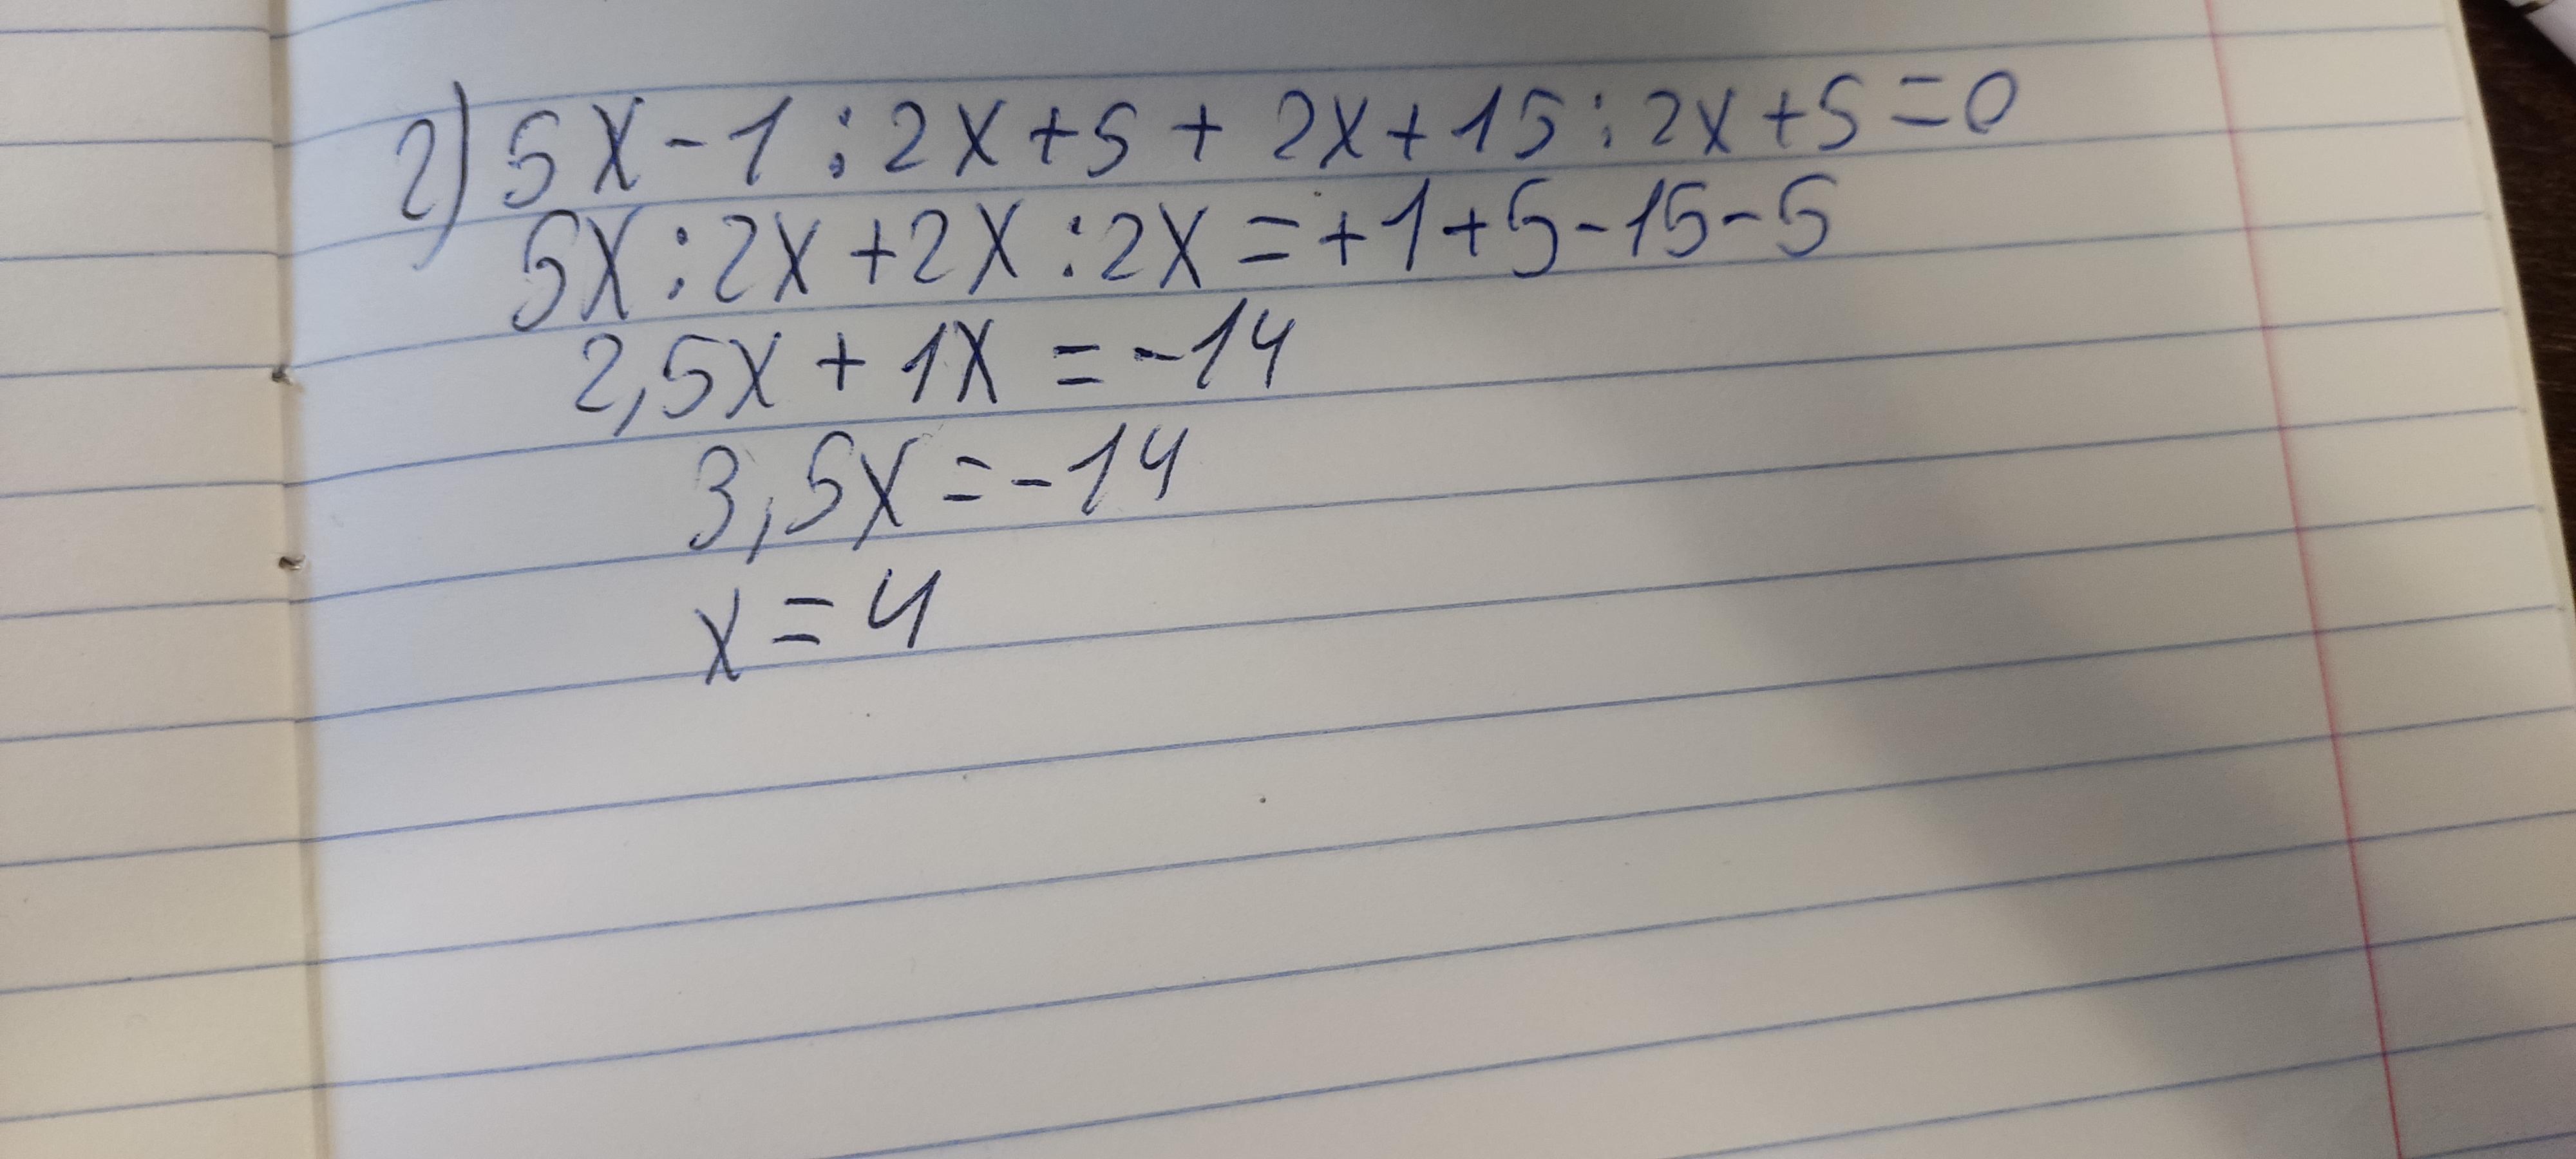 2) 5x-1:2x+5+2x+15:2x+5=0
5x:2x+2x:2x=+1+5-15-5
2,5x+1x=-14
3,5x=-14
x=4